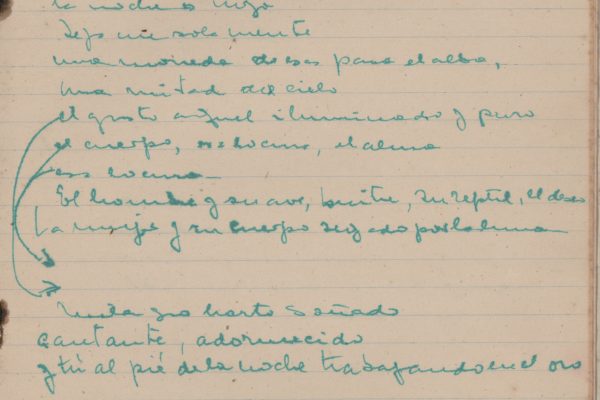 la noche es
Deja me solamente
una moneda de esas para el alba,
una mitad del cielo
el gesto aquel iluminado y puro
el cuerpo, esa locura, el alma
esa locura
El hombre y su ave, buitre, su reptil, el deseo
La mujer y su cuerpo segado por la luna
Milagro harto soñado
cantante, adormecido
y tú al pié de la noche trabajando en el oro